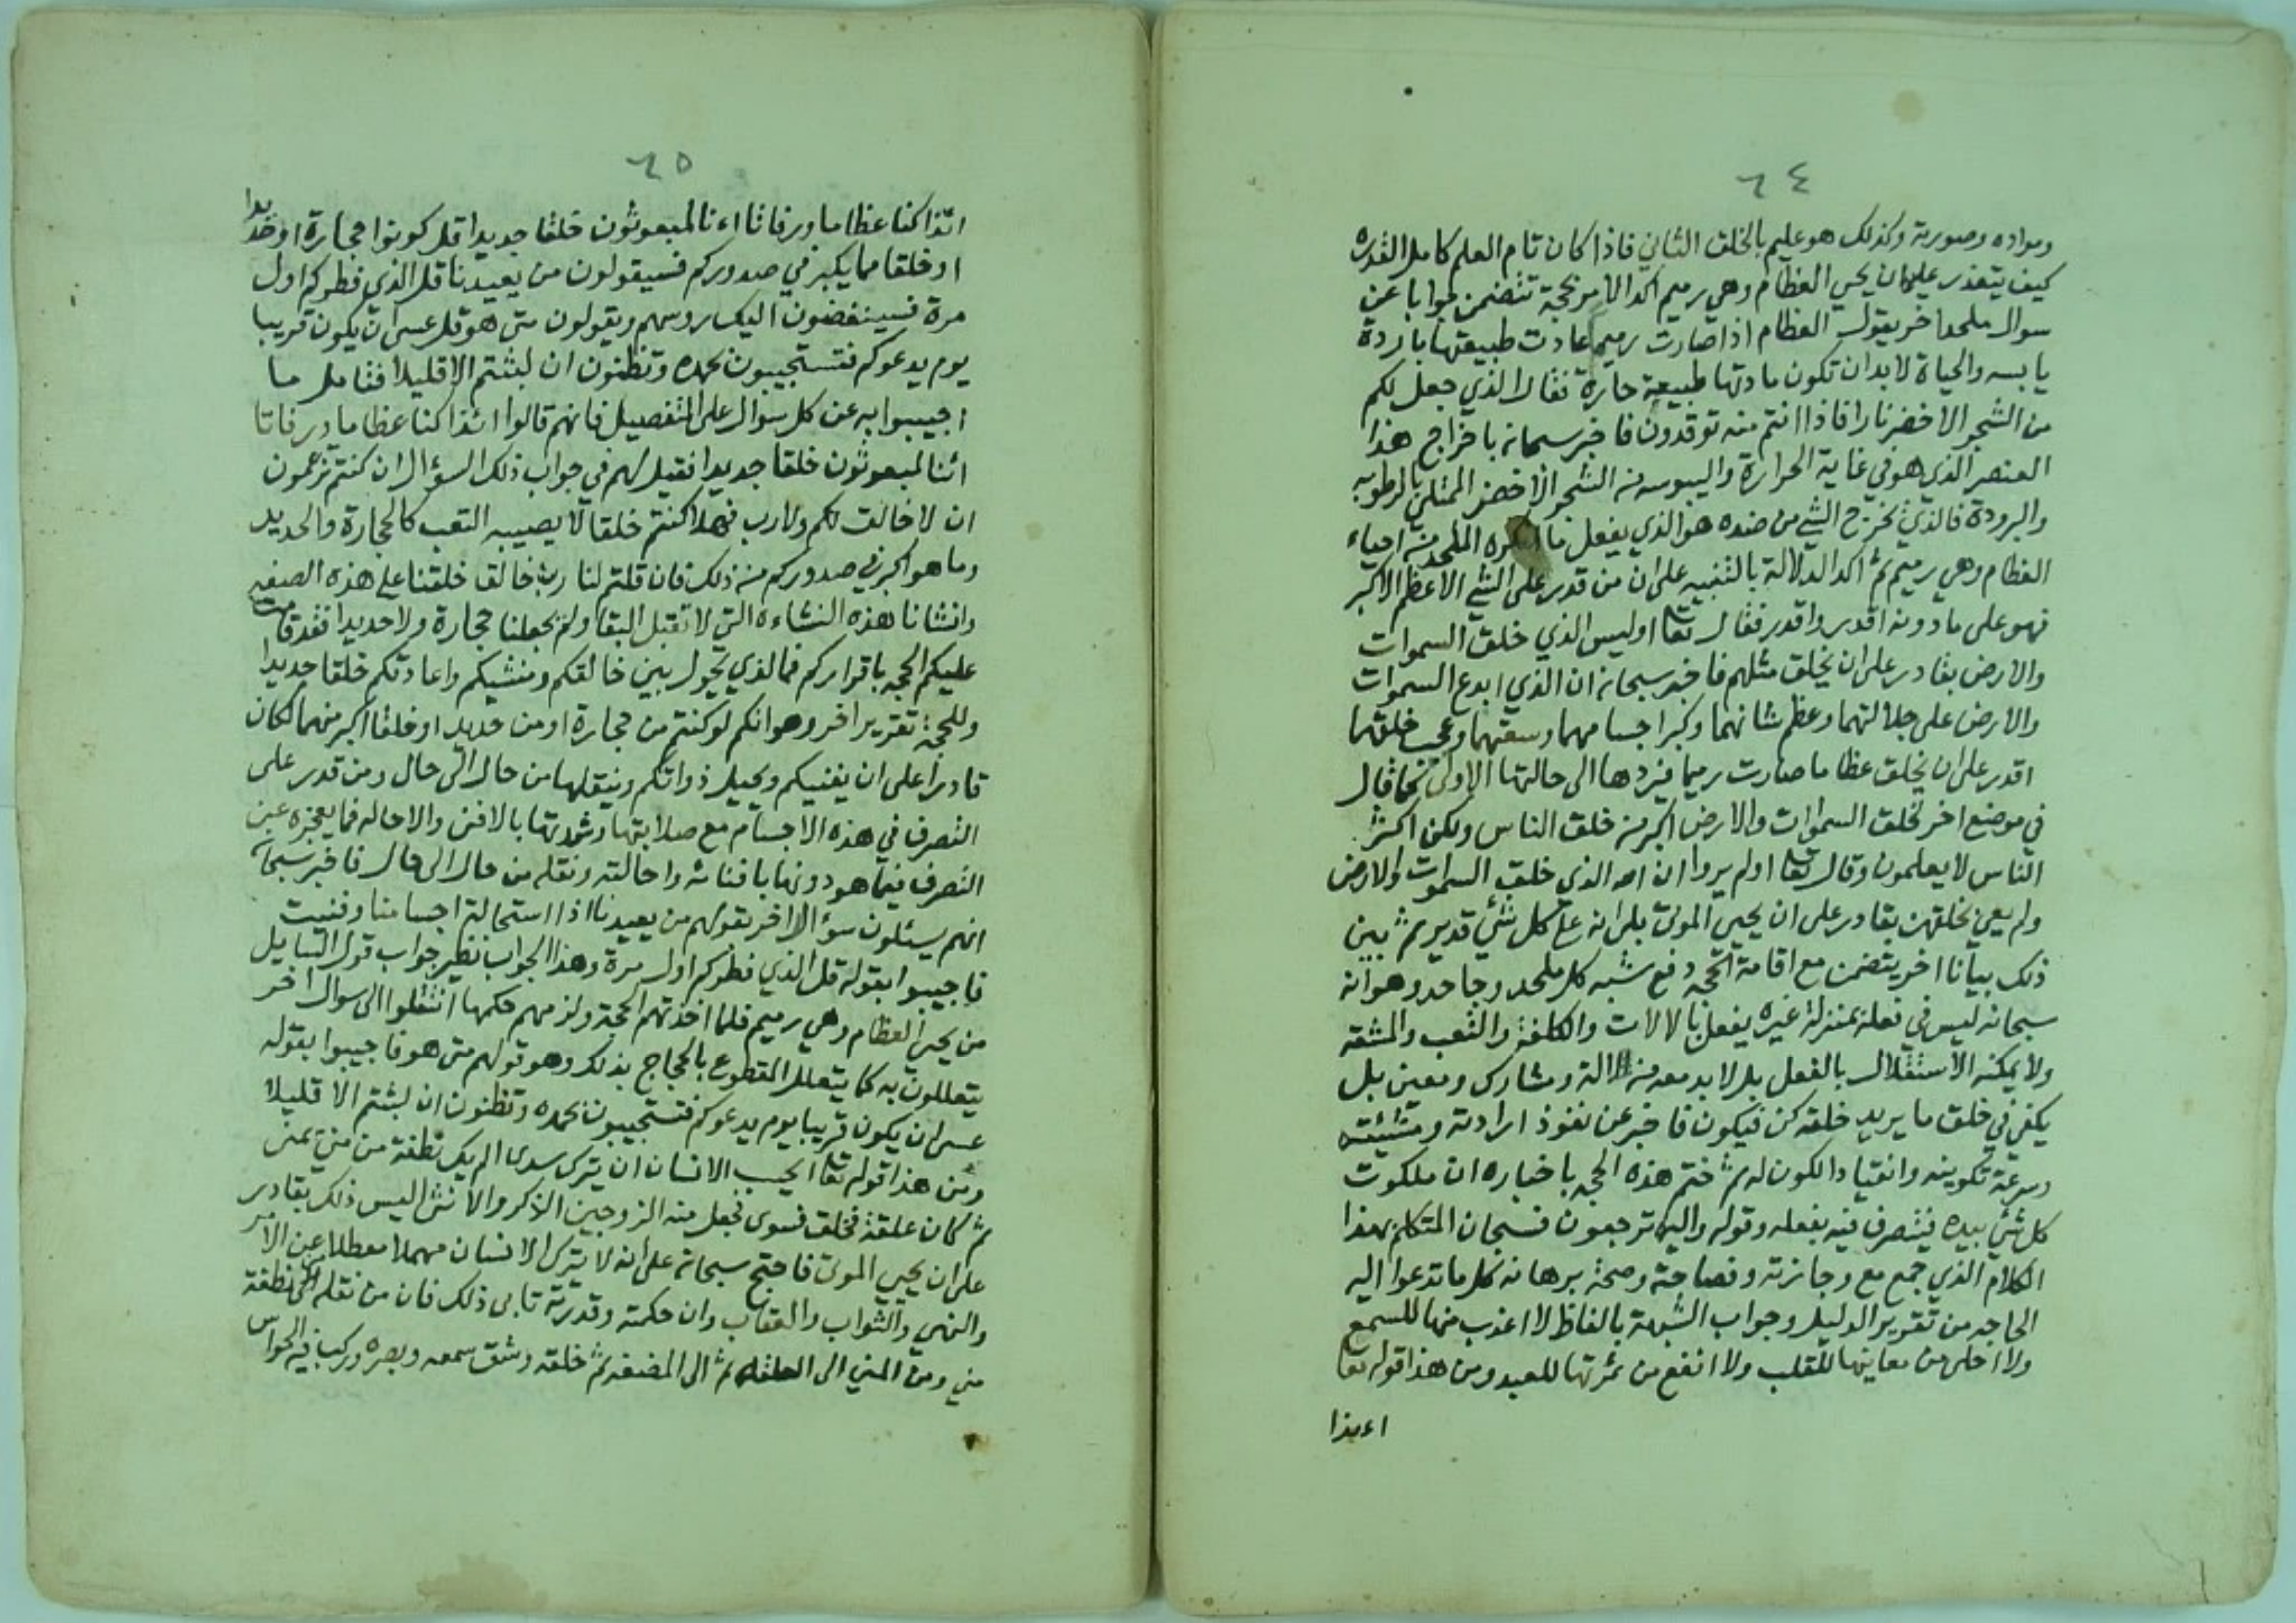 ٦٤
ومواده وصورته وكذلك هو عليم بالخلق الثاني فاذا كان تام العلم كامل القدره
كيف يتعذر عليه ان يحيي العظام وهي رميم اكد الامر بحجة تتضمن جوابا عن
سوال ملحد اخر يقول العظام اذا صارت رميم عادت طبيعتها باردة
يابسه والحياة لابد ان تكون مادتها طبيعة حارة فقال الذي جعل لكم
من الشجر الاخضر نارا فاذا انتم منه توقدون فاخبر سبحانه باخراج هذا
العنصر الذي هو في غاية الحرارة واليبوسه من الشجر الاخضر الممتلئ بالرطوبه
والبرودة فالذي يخرج الشي من ضده هو الذي يفعل ما انكره الملحد من احياء
العظام وهي رميم ثم اكد الدلالة بالتنبيه على ان من قدر على الشي الاعظم الاكبر
فهو على مادونه اقدر واقدر فقال تعا اوليس الذي خلق السموات
والارض بقادر على ان يخلق مثلهم فاخبر سبحانه ان الذي ابدع السموات
والارض على جلالتهما وعظم شانهما وكبر اجسامهما وسعتهما وعجيب خلقهما
اقدر على ان يخلق عظاما صارت رميما فيردها الى حالتها الاولى كما قال
في موضع اخر لخلق السموات والارض اكبر من خلق الناس ولكن اكثر
الناس لا يعلمون وقال تعا اولم يروا ان الله الذي خلق السموات والارض
ولم يعي بخلقهن بقادر على ان يحيي الموتى بلى انه على كل شئ قدير ثم بين
ذلك بيانا اخر يتضمن مع اقامة الحجه دفع شبه كل ملحد وجاحد وهو انه
سبحانه ليس في فعله بمنزلة غيره يفعل بالالات والكلفة والتعب والمشقه
ولا يمكنه الاستقلال بالفعل بل لابد معه من الة ومشارك ومعين بل
يكفي في خلق ما يريد خلقه كن فيكون فاخبر عن نفوذ ارادته ومشيئته
وسرعة تكوينه وانقياد الكون له ثم ختم هذه الحجه باخباره ان ملكوت
كل شئ بيده فيتصرف فيه بفعله وقوله واليه ترجعون فسبحان المتكلم بهذا
الكلام الذي جمع مع وجازته وفصاحته وصحة برهانه كل ما تدعوا اليه
الحاجه من تقرير الدليل وجواب الشبهة بالفاظ لا اعذب منها للسمع
ولا احلى من معانيها للقلب ولا انفع من ثمرتها للعبد ومن هذا قوله تعا
اءيذا
٦٥
ائذا كنا عظاما ورفاتا اءنا لمبعوثون خلقا جديدا قل كونوا حجارة او حديدا
او خلقا مما يكبر في صدوركم فسيقولون من يعيدنا قل الذي فطركم اول
مرة فسينغضون اليك روسهم ويقولون متى هو قل عسى ان يكون قريبا
يوم يدعوكم فتستجيبون بحمده وتظنون ان لبثتم الا قليلا فتامل ما
اجيبوا به عن كل سوال على التفصيل فانهم قالوا ائذا كنا عظاما ورفاتا
ائنا لمبعوثون خلقا جديدا فقيل لهم في جواب ذلك السؤال ان كنتم تزعمون
ان لا خالق لكم ولا رب فهلا كنتم خلقا لا يصيبه التعب كالحجارة والحديد
وما هو اكبر في صدوركم من ذلك فان قلتم لنا رب خالق خلقنا على هذه الصفه
وانشانا هذه النشاءه التي لا تقبل البقا ولم يجعلنا حجارة ولا حديدا فقد قامت
عليكم الحجه باقراركم فما الذي يحول بين خالقكم ومنشيكم واعادتكم خلقا جديدا
وللحجة تقرير اخر وهو انكم لو كنتم من حجارة او من حديد او خلقا اكبر منهما لكان
قادرا على ان يفنيكم ويحيل ذواتكم وينقلها من حال الى حال ومن قدر على
التصرف في هذه الاجسام مع صلابتها وشدتها بالافنى والاحاله فما يعجزه عن
التصرف فيما هو دونها بافنائه واحالته ونقله من حال الى حال فاخبر سبحا
انهم سيئلون سؤالا اخر بقولهم من يعيدنا اذا استحالة اجسامنا وفنيت
فاجيبوا بقوله قل الذي فطركم اول مرة وهذا الجواب نظير جواب قول السايل
من يحيي العظام وهي رميم فلما اخذتهم الحجة ولزمهم حكمها انتقلوا الى سوال اخر
يتعللون به كما يتعلل المقطوع بالحجاج بذلك وهو قولهم متى هو فاجيبوا بقوله
عسى ان يكون قريبا يوم يدعوكم فتستجيبون بحمده وتظنون ان لبثتم الا قليلا
ومن هذا قوله تعا ايحسب الانسان ان يترك سدى الم يك نطفة من مني يمنى
ثم كان علقة فخلق فسوى فجعل منه الزوجين الذكر والانثى اليس ذلك بقادر
على ان يحيي الموتى فاحتج سبحانه على انه لا يترك الانسان مهملا معطلا عن الامر
والنهي والثواب والعقاب وان حكمته وقدرته تابى ذلك فان من نقله من نطفة
مني ومن المني الى العلقه ثم الى المضغه ثم خلقه وشق سمعه وبصره وركب فيه الحواس